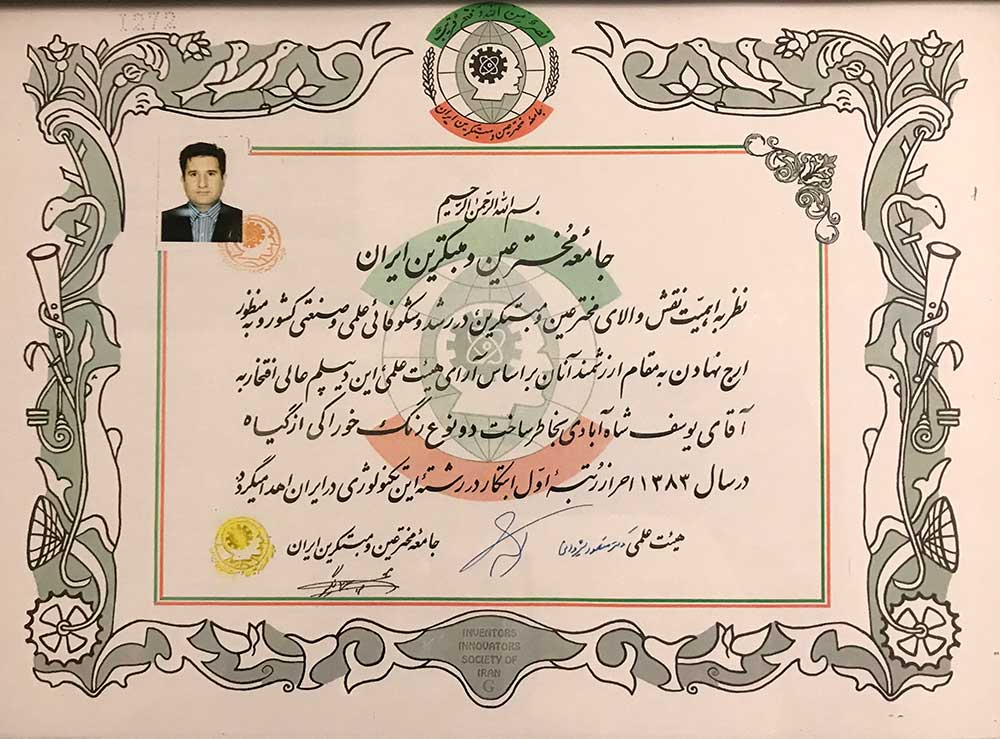 1272
نصر من الله و فتح قریب
جامعه مخترعین و مبتکرین ایران
بسم الله الرحمن الرحیم
جامعهٔ مخترعین و مبتکرین ایران
نظر به اهمیّت نقش والای مخترعین و مبتکرین در رشد و شکوفائی علمی و صنعتی کشور و به منظور
ارج نهادن به مقام ارزشمند آنان بر اساس آرای هیئت علمی این دیپلم عالی افتخار به
آقای یوسف شاه آبادی بخاطر ساخت دو نوع رنگ خوراکی از گیاه
در سال ۱۳۸۳ احراز رُتبهٔ اوّل ابتکار در رشتهٔ این تکنولوژی در ایران اهدا میگردد
هیئت علمی
جامعه مخترعین و مبتکرین ایران
INVENTORS
INNOVATORS
SOCIETY OF
IRAN
G